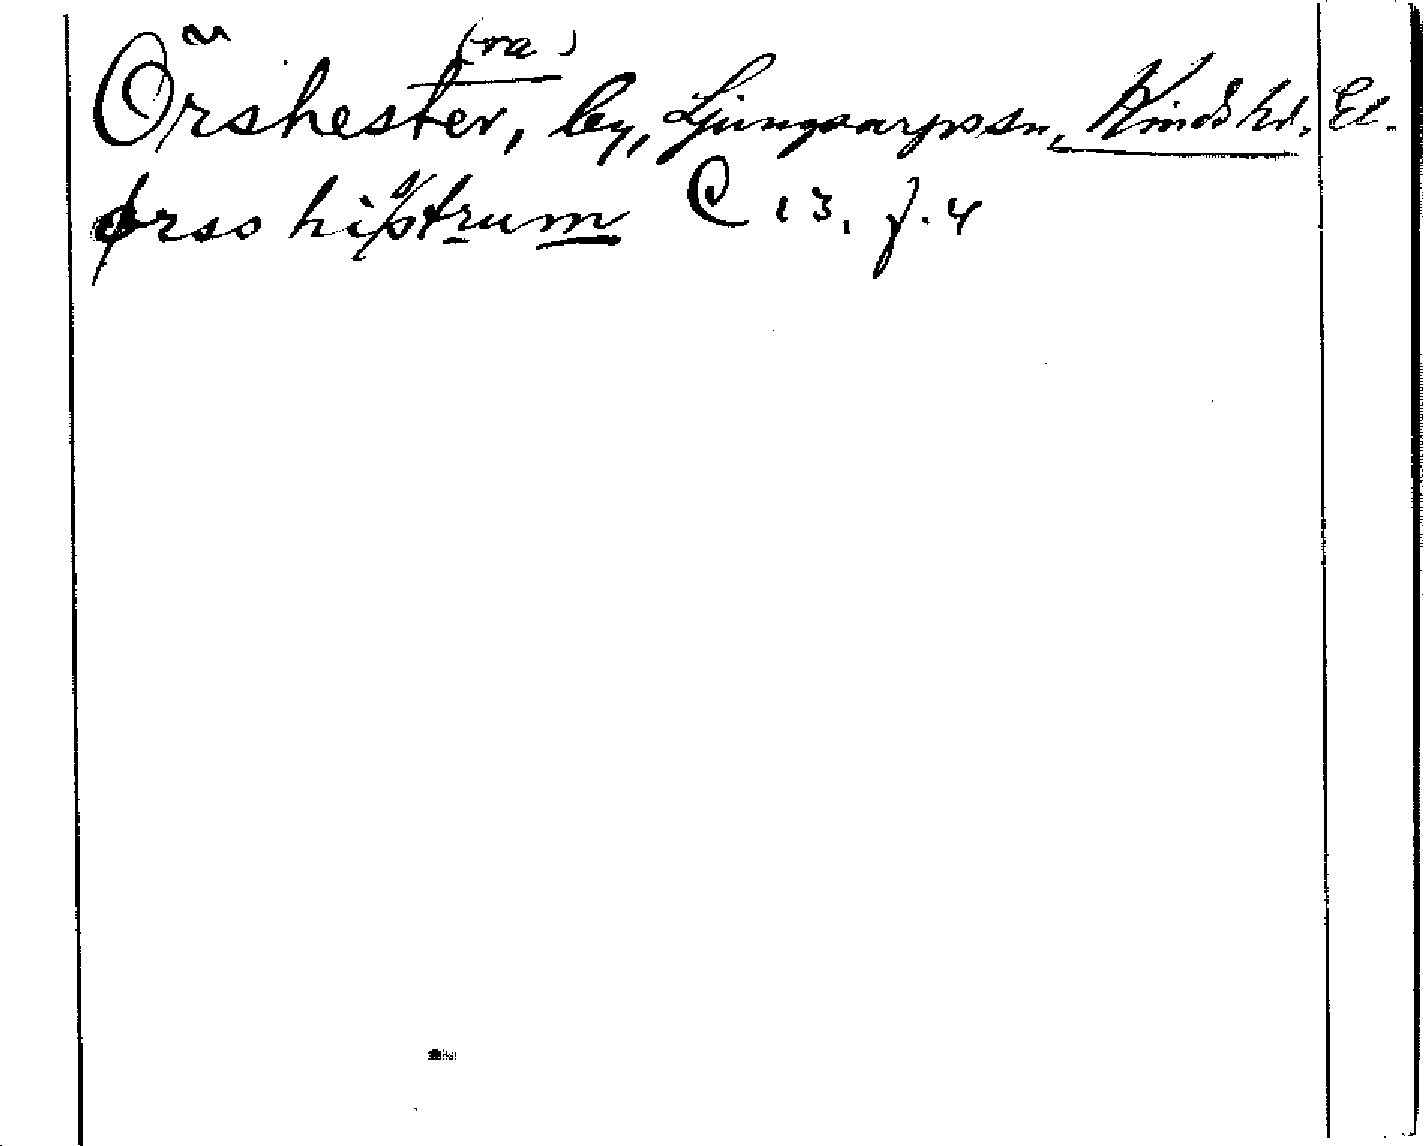 (ra)
Örshester, by, Ljungsarps sn, Kinds hd. El.
ørsohistrum C 13, f. 4